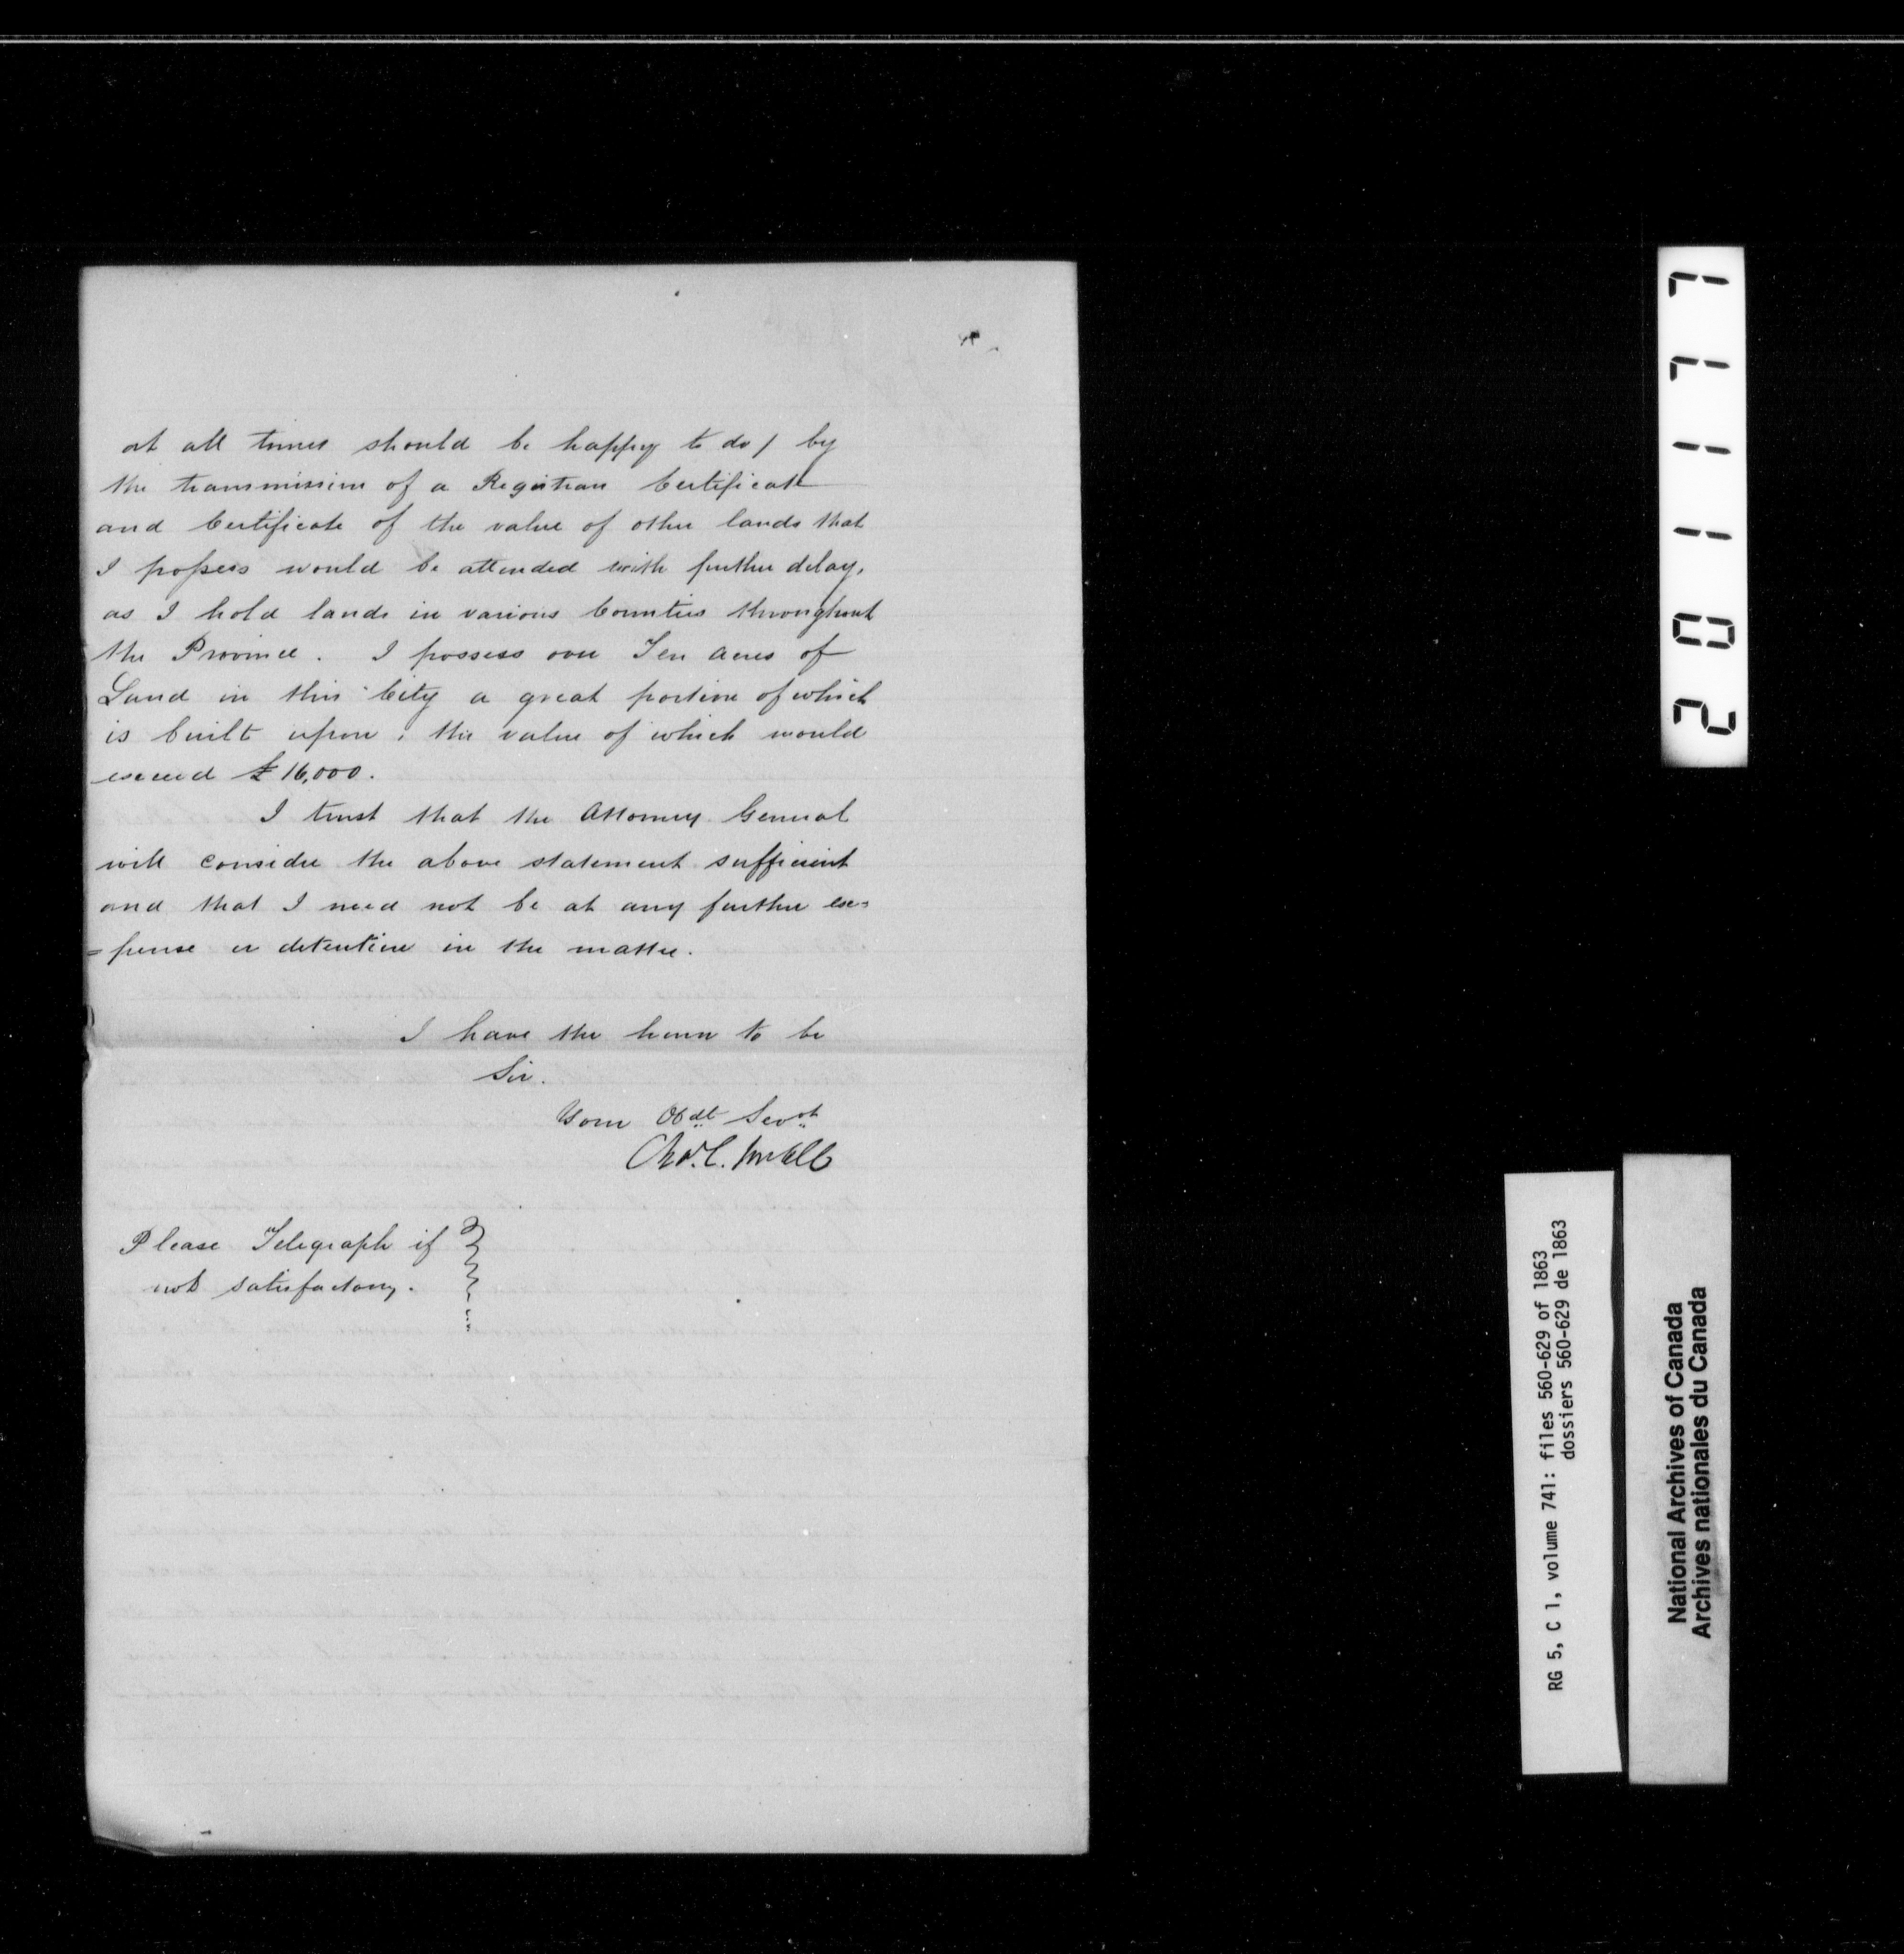 at all times should be happy to do / by
the transmission of a Registrars Certificate
and Certificate of the value of other lands that
I possess would be attended with further delay,
as I hold lands in various Counties throughout
the Province. I possess over Ten acres of
Land in this City a great portion of which
is built upon, the value of which would
exceed £16,000.
I trust that the Attorney General
will consider the above statement sufficient
and that I need not be at any further ex=
=pense or detention in the matter.
I have the honor to be
Sir.
Your Obdt Servt
Chas. C.
Please Telegraph if
not satisfactory.
201177
RG 5, C 1, volume 741: files 560-629 of 1863
dossiers 560-629 de 1863
National Archives of Canada
Archives nationales du Canada